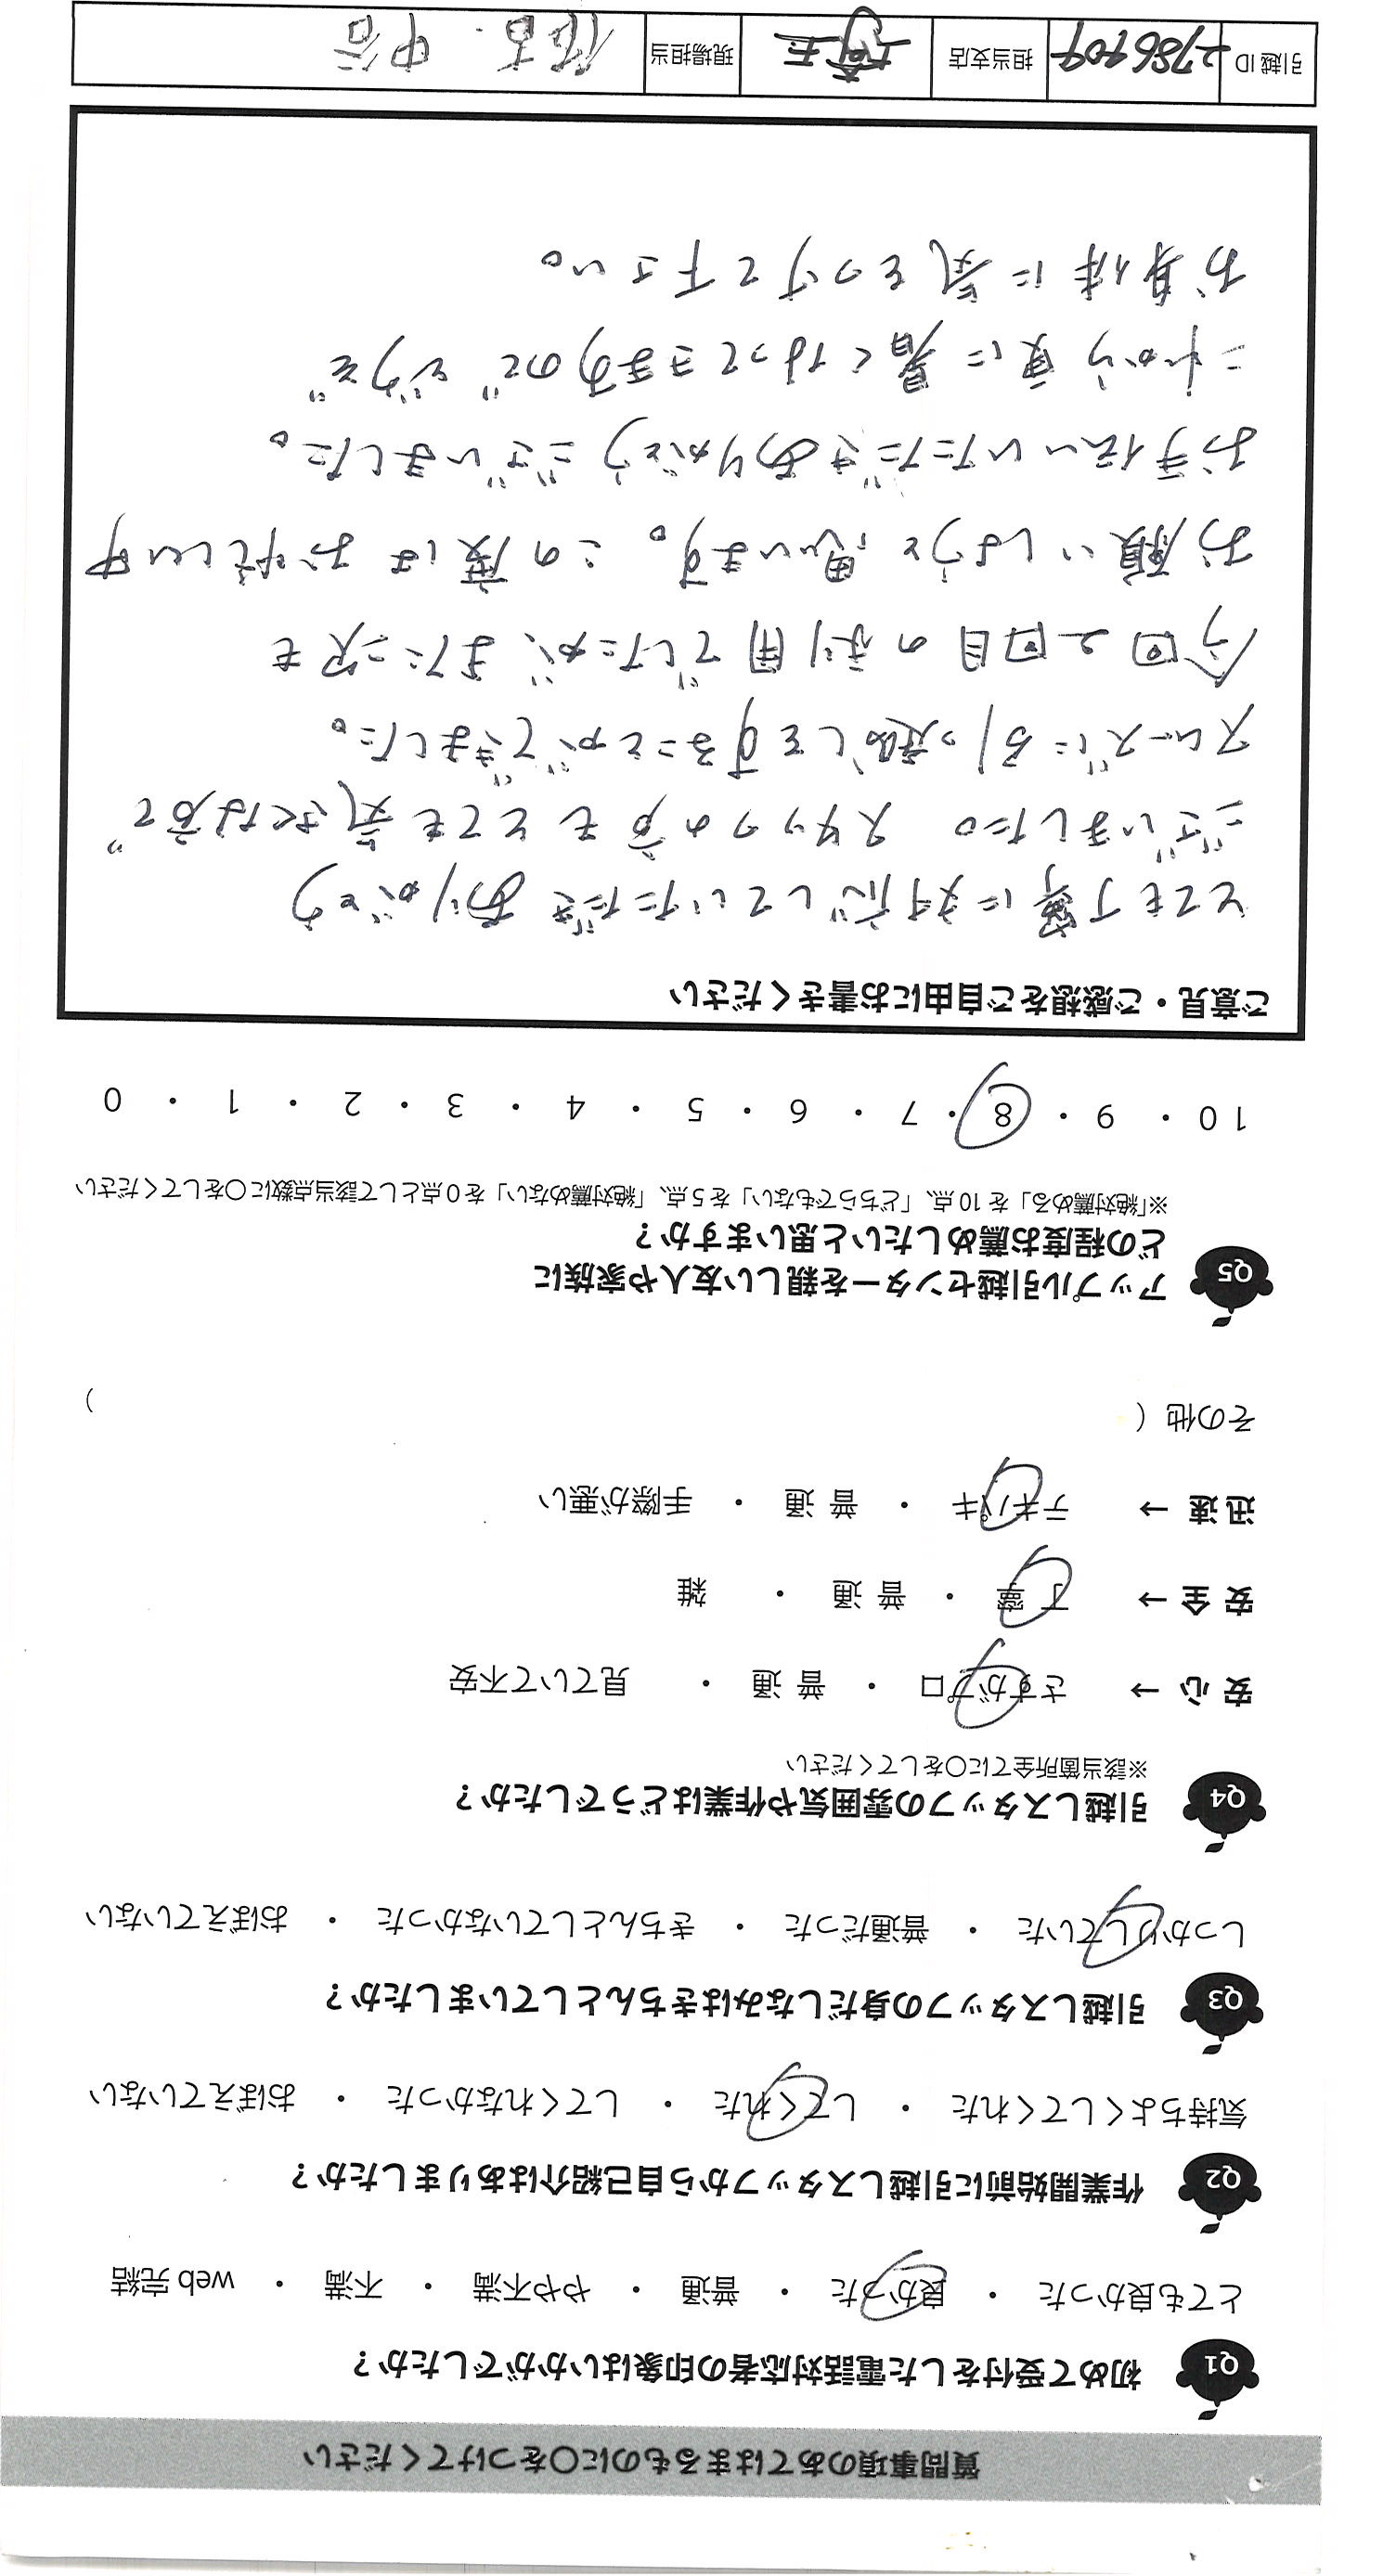 質問事項のあてはまるものに〇をつけてください
Q1 初めて受付をした電話対応者の印象はいかがでしたか？
とても良かった ・ 良かった ・ 普通 ・ やや不満 ・ 不満 ・ web 完結
Q2 作業開始前に引越しスタッフから自己紹介はありましたか？
気持ちよくしてくれた ・ してくれた ・ してくれなかった ・ おぼえていない
Q3 引越しスタッフの身だしなみはきちんとしていましたか？
しっかりしていた ・ 普通だった ・ きちんとしていなかった ・ おぼえていない
Q4 引越しスタッフの雰囲気や作業はどうでしたか？
※該当箇所全てに〇をしてください
安 心 → さすがプロ ・ 普 通 ・ 見ていて不安
安 全 → 丁 寧 ・ 普 通 ・ 雑
迅 速 → テキパキ ・ 普 通 ・ 手際が悪い
その他（ ）
Q5 アップル引越センターを親しい友人や家族に
どの程度お薦めしたいと思いますか？
※「絶対薦める」を 10 点、「どちらでもない」を 5 点、「絶対薦めない」を 0 点として該当点数に〇をしてください
10 ・ 9 ・ 8 ・ 7 ・ 6 ・ 5 ・ 4 ・ 3 ・ 2 ・ 1 ・ 0
ご意見・ご感想をご自由にお書きください
とても丁寧に対応していただきありがとう
ございました。スタッフの方もとても気さくな方で
スムーズに引っ越しをすることができました。
今回2回目の利用でしたが、また次も
お願いしようと思います。この度はお忙しい中
お手伝いいただきありがとうございました。
これから更に暑くなってきますのでどうぞ
お身体に気をつけて下さい。
引越 ID 2786909 担当支店 埼玉 現場担当